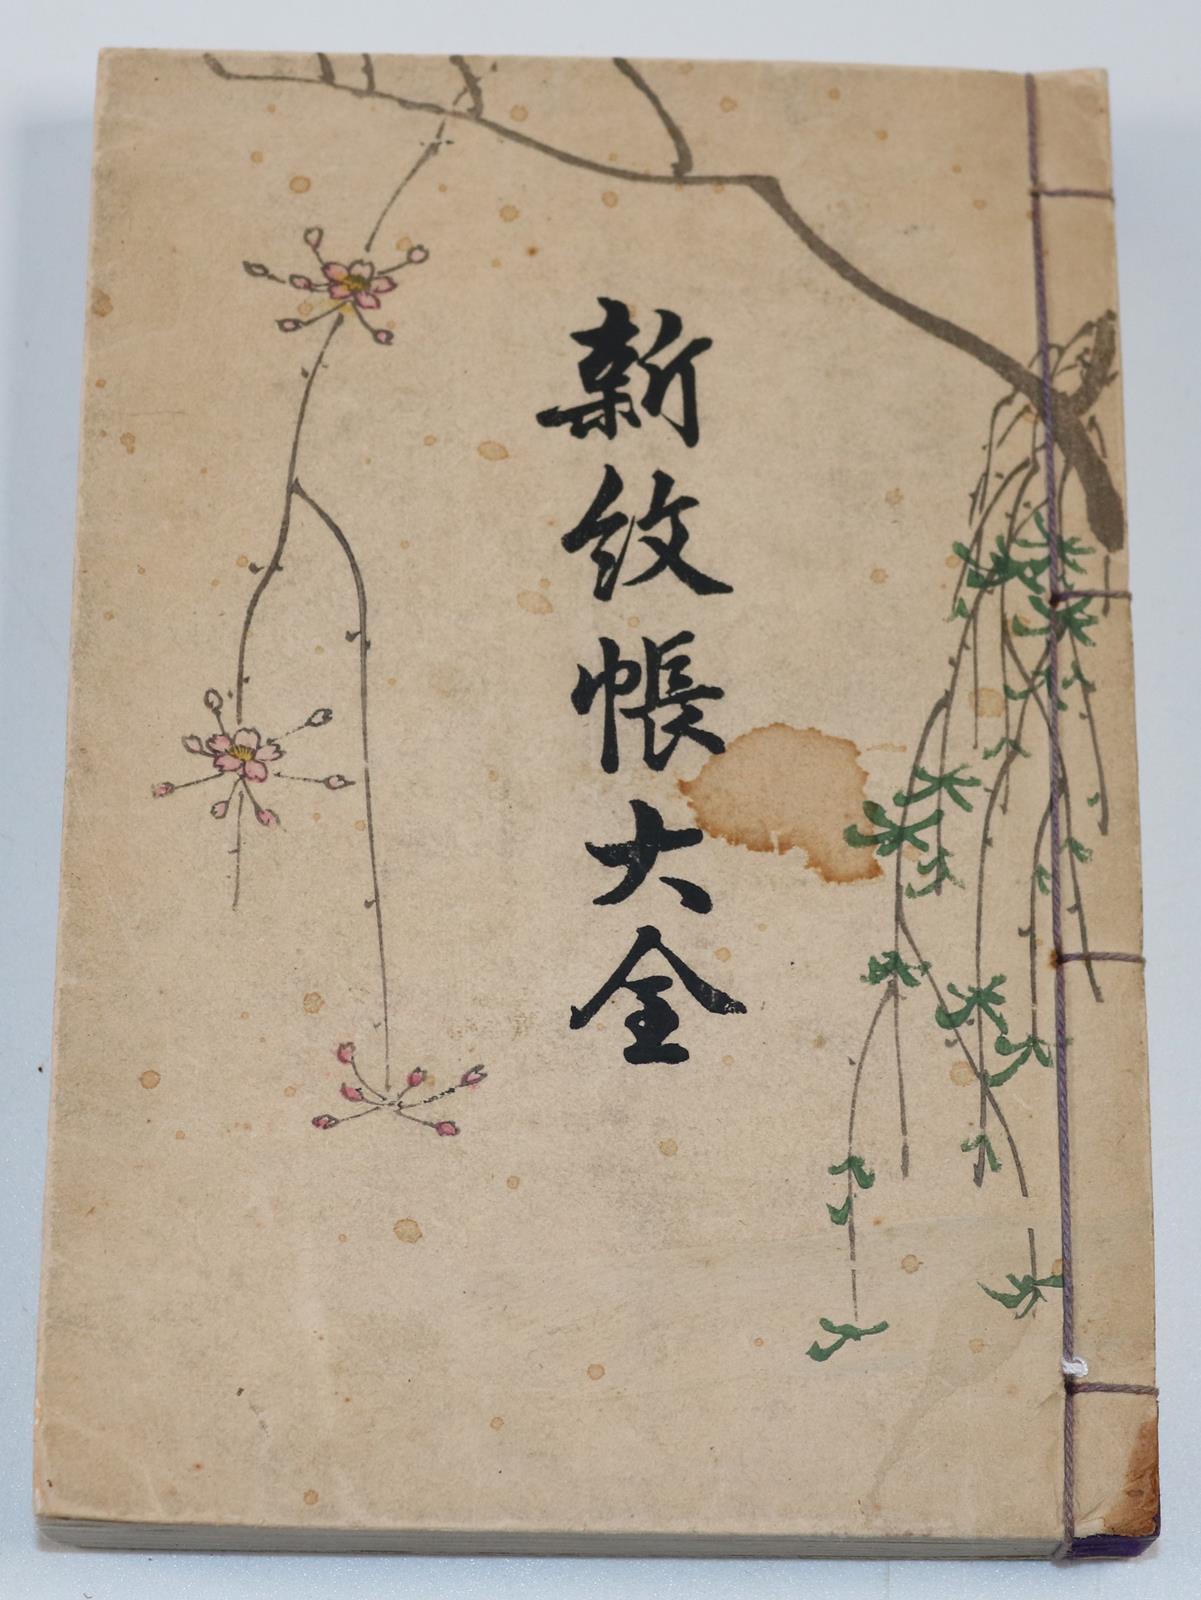 新紋帳大全